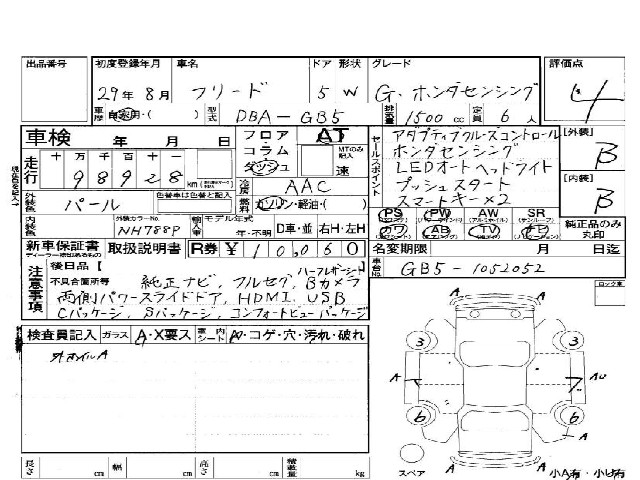 出品番号 初度登録年月 車名 ドア 形状 グレード 評価点
29年 8月 フリード 5 W G・ホンダセンシング 4
車歴 自家用・( ) 型式 DBA-GB5 排気量 1500 cc 定員 6 人
車検 年 月 日 フロア AT セールスポイント アダプティブクルーズコントロール [外装] B
走行 十 万 千 百 十 一 コラム MTのみ記入 ホンダセンシング
9 8 9 2 8 km ダッシュ 速 LEDオートヘッドライト [内装] B
冷房 AAC プッシュスタート
外装色 パール 色替車は色替と記入 燃料 ガソリン・軽油・( ) スマートキー×2
内装色 外装カラーNo. NH788P 輸入車 モデル年式 年・不明 D車・並 右H・左H
PS PW AW SR 純正品のみ丸印
カワ AB TV ナビ
新車保証書 取扱説明書 R券 ¥ 10,060 名変期限 月 日迄
ディーラー印のあるもの
注意事項 後日品【 ハーフレザーシート 車台No. GB5-1052052
不具合箇所等 純正ナビ, フルセグ, Bカメラ ロック車
両側パワースライドドア, HDMI, USB
Cパッケージ, Sパッケージ, コンフォートビューパッケージ
検査員記入 ガラス A・X要ス 室内シート A・コゲ・穴・汚れ・破れ
ホイルA
A
3 3
A A
6 6
A
A A
スペア 小A有・小U有
長さ cm 幅 cm 高さ cm 積載量 kg